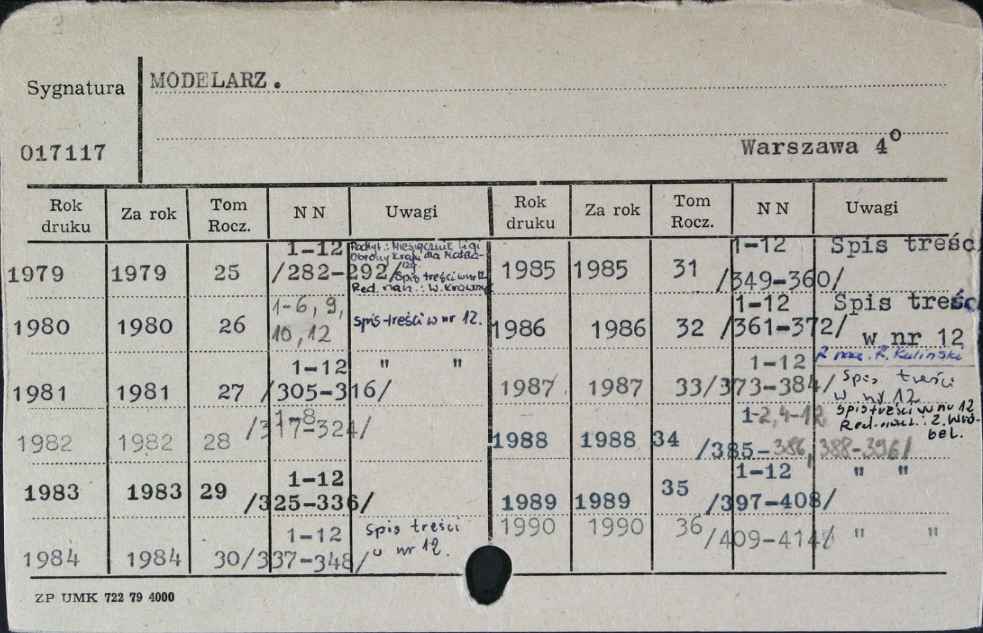 MODELARZ.
Sygnatura
017117
Warszawa 4°
Rok druku Za rok Tom Rocz. NN Uwagi Rok druku Za rok Tom Rocz. NN Uwagi
1979 1979 25 1-12 /282-292/ Podtyt.: Miesięcznik Ligi Obrony Kraju dla Spis treści w nr 12. Red. nacz.: W.
1980 1980 26 1-6, 9, 10, 12 spis treści w nr 12.
1981 1981 27 1-12 /305-316/ " "
1982 1982 28 1-8 /317-324/
1983 1983 29 1-12 /325-336/
1984 1984 30 1-12 /337-348/ Spis treści w nr 12.
1985 1985 31 1-12 /349-360/ Spis treśc
1986 1986 32 1-12 /361-372/ Spis treśc w nr 12
1987 1987 33 1-12 /373-384/ R. Kuliński Spis treści w nr 12
1988 1988 34 1-2, 4-12 /385-386, 388-396/ Spis treści w nr 12 Red. nacz.: Z. Wróbel.
1989 1989 35 1-12 /397-408/ " "
1990 1990 36 /409-414/ " "
ZP UMK 722 79 4000